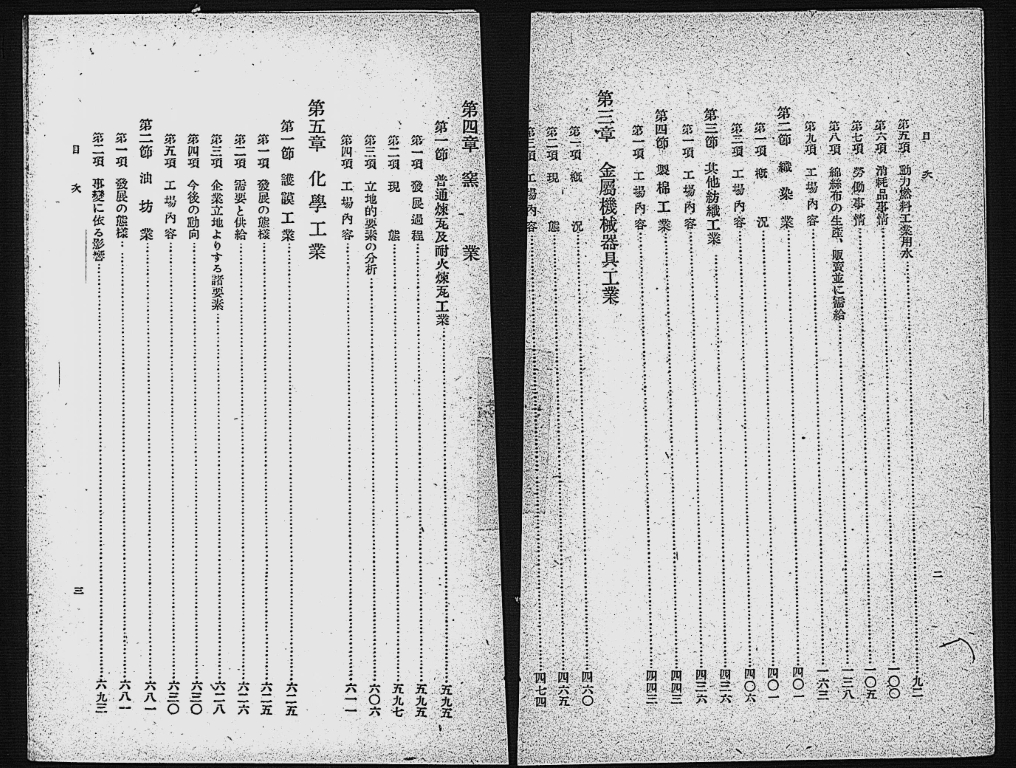 目次
第五項 動力燃料工業用水……九二
第六項 消耗品事情……一〇〇
第七項 勞働事情……一〇五
第八項 綿絲布の生産、販賣並に需給……一三八
第九項 工場內容……一六三
第二節 織染業……四〇一
第一項 槪況……四〇一
第二項 工場內容……四〇六
第三節 其他紡織工業……四三六
第一項 工場內容……四三六
第四節 製棉工業……四四三
第一項 工場內容……四四三
第三章 金屬機械器具工業
第一項 槪況……四六〇
第二項 現態……四六五
第三項 工場內容……四七四
二
第四章 窯業
第一節 普通煉瓦及耐火煉瓦工業……五九五
第一項 發展過程……五九五
第二項 現態……五九七
第三項 立地的要素の分析……六〇六
第四項 工場內容……六一一
第五章 化學工業
第一節 護謨工業……六二五
第一項 發展の態樣……六二五
第二項 需要と供給……六二六
第三項 企業立地よりする諸要素……六二八
第四項 今後の動向……六三〇
第五項 工場內容……六三〇
第二節 油坊業……六八一
第一項 發展の態樣……六八一
第二項 事變に依る影響……六九三
目次
三